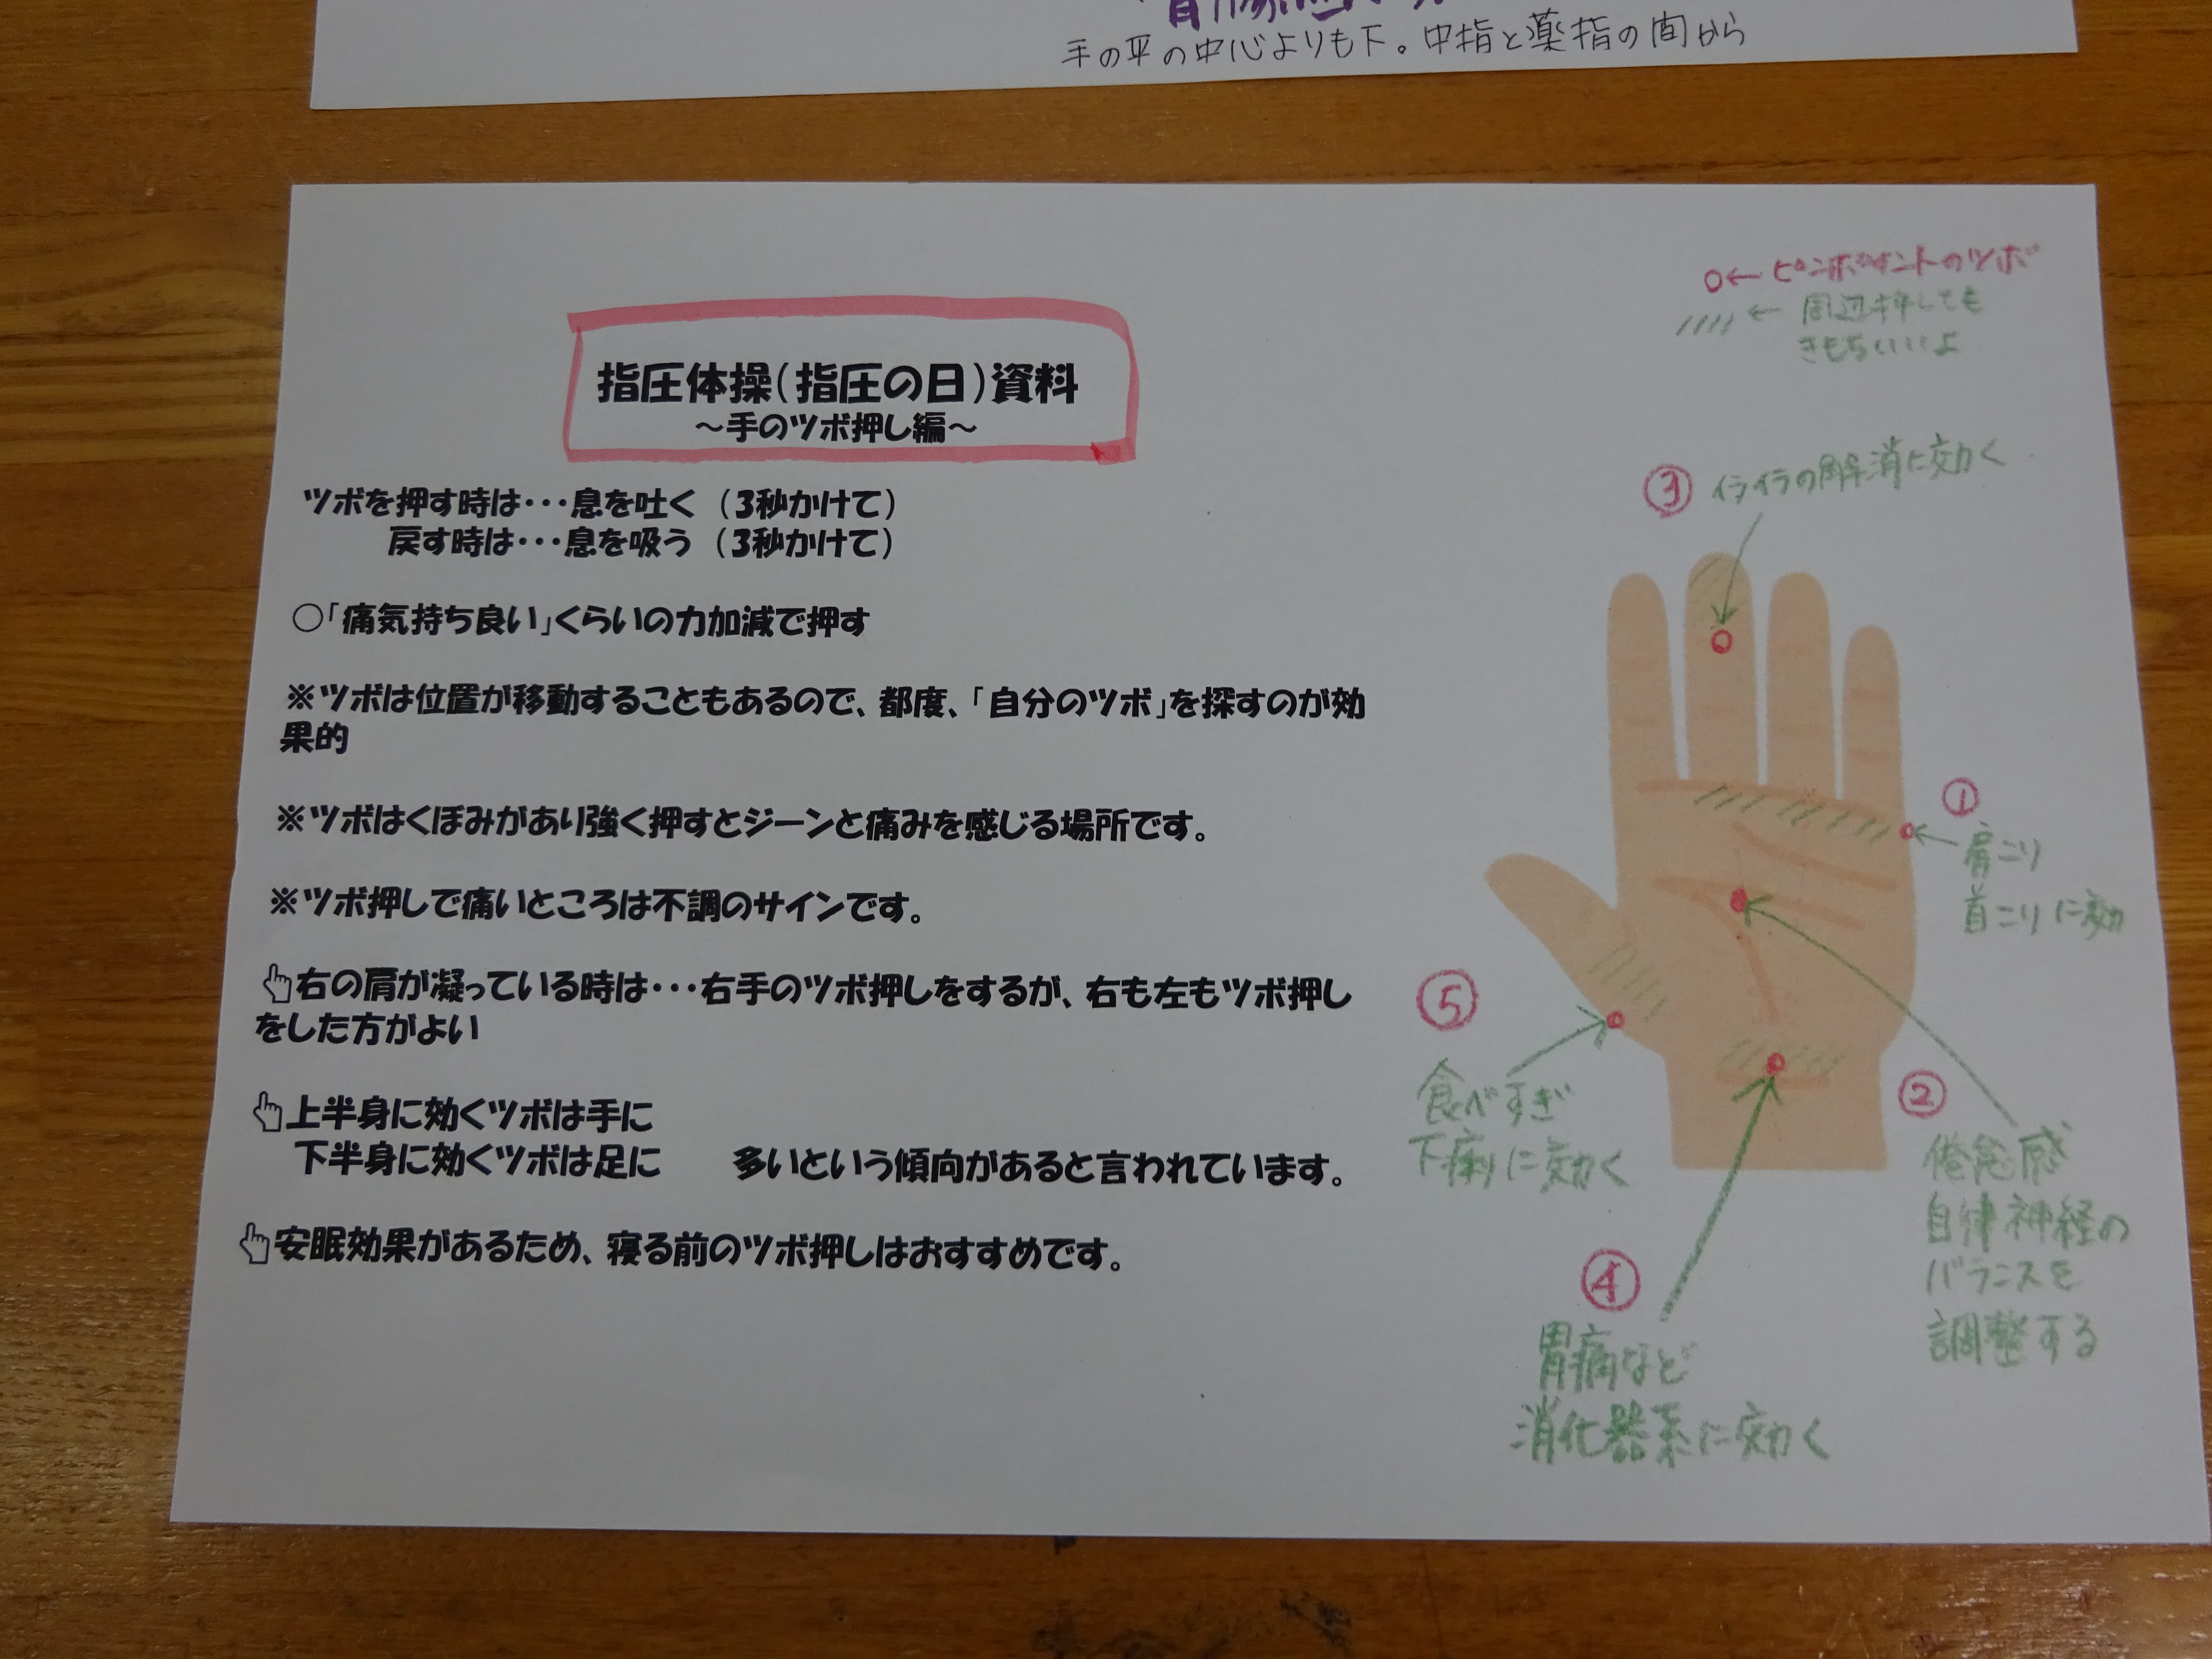 手の平の中心よりも下。中指と薬指の間から
指圧体操(指圧の日)資料
～手のツボ押し編～
ツボを押す時は･･･息を吐く（3秒かけて）
戻す時は･･･息を吸う（3秒かけて）
○「痛気持ち良い」くらいの力加減で押す
※ツボは位置が移動することもあるので、都度、「自分のツボ」を探すのが効
果的
※ツボはくぼみがあり強く押すとジーンと痛みを感じる場所です。
※ツボ押しで痛いところは不調のサインです。
右の肩が凝っている時は･･･右手のツボ押しをするが、右も左もツボ押し
をした方がよい
上半身に効くツボは手に
下半身に効くツボは足に　　多いという傾向があると言われています。
安眠効果があるため、寝る前のツボ押しはおすすめです。
○← ピンポイントのツボ
//// ← 周辺押しても
きもちいいよ
③ イライラの解消に効く
①
肩こり
首こりに効
②
倦怠感
自律神経の
バランスを
調整する
⑤
食べすぎ
下痢に効く
④
胃痛など
消化器系に効く